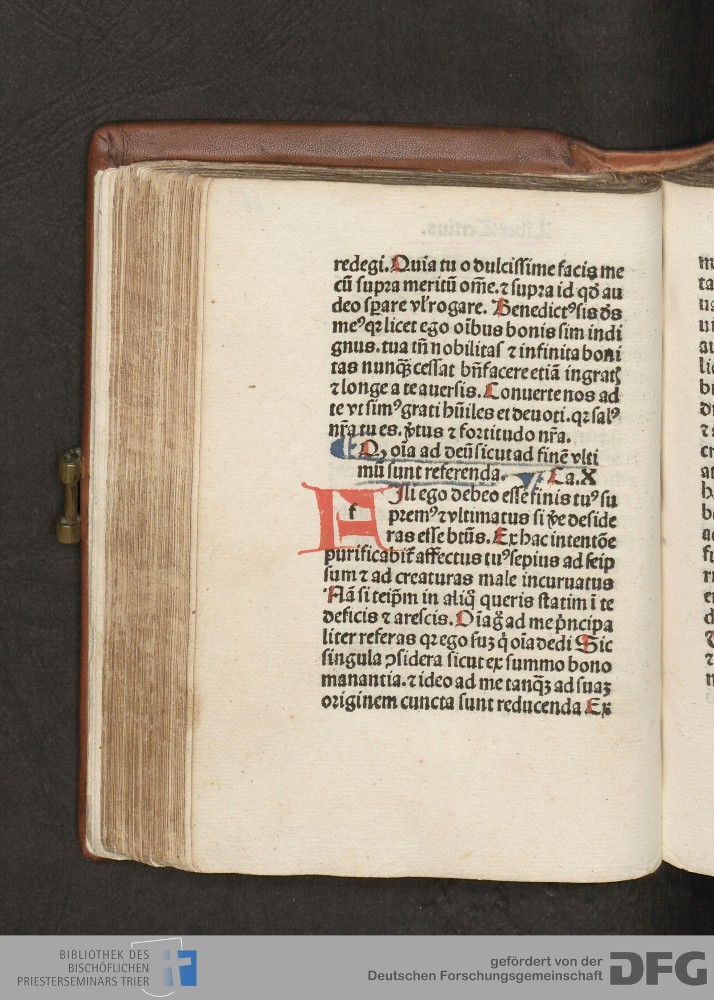 redegi. Quia tu o dulcissime facis me
cū supra meritū om̄e. ⁊ supra id qd̄ au
deo sꝑare vl̓ rogare. Benedictꝰ sis dš
meꝰ qꝛ licet ego oībus bonis sim indi
gnus. tua tn̄ nobilitas ⁊ infinita boni
tas nunqꝫ cessat bn̄facere etiā ingratꝭ
⁊ longe a te auersis. Conuerte nos ad
te vt simꝰ grati hūiles et deuoti. qꝛ salꝰ
nr̄a tu es. v̓tus ⁊ fortitudo nr̄a.
Q, oīa ad deū sicut ad finē vlti
mū sunt referenda. Ca. X
F Ili ego debeo esse finis tuꝰ su
premꝰ ⁊ vltimatus si v̓e deside
ras esse btūs. Ex hac intentōe
purificabit᷑ affectus tuꝰ sepius ad seip
sum ⁊ ad creaturas male incuruatus
Nā si teip̄m in aliq̊ queris statim ī te
deficis ⁊ arescis. Oīa g̊ ad me pͥncipa
liter referas qꝛ ego suꝫ q̇ oīa dedi Sic
singula ꝯsidera sicut ex summo bono
manantia. ⁊ ideo ad me tanqꝫ ad suaꝫ
originem cuncta sunt reducenda Ex
BIBLIOTHEK DES
BISCHÖFLICHEN
PRIESTERSEMINARS TRIER
gefördert von der
Deutschen Forschungsgemeinschaft
DFG